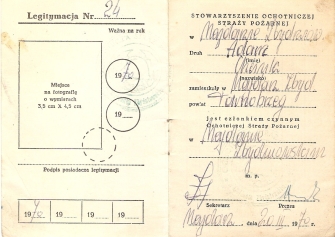 Legitymacja Nr. 24
Ważna na rok
1970
19
Miejsce
na fotografię
o wymiarach
3,5 cm X 4,5 cm
Podpis posiadacza legitymacji
1970 19 19 19
STOWARZYSZENIE OCHOTNICZEJ
STRAŻY POŻARNEJ
w Majdanie Zbydniowskim
Druh Adam
(imię)
(nazwisko)
zamieszkały w Majdan Zbyd
powiat Tarnobrzeg
jest członkiem czynnym
Ochotniczej Straży Pożarnej
w Majdanie
Zbydniowskim
m. p.
Sekretarz Prezes
Majdan dnia 20 III 1970 r.